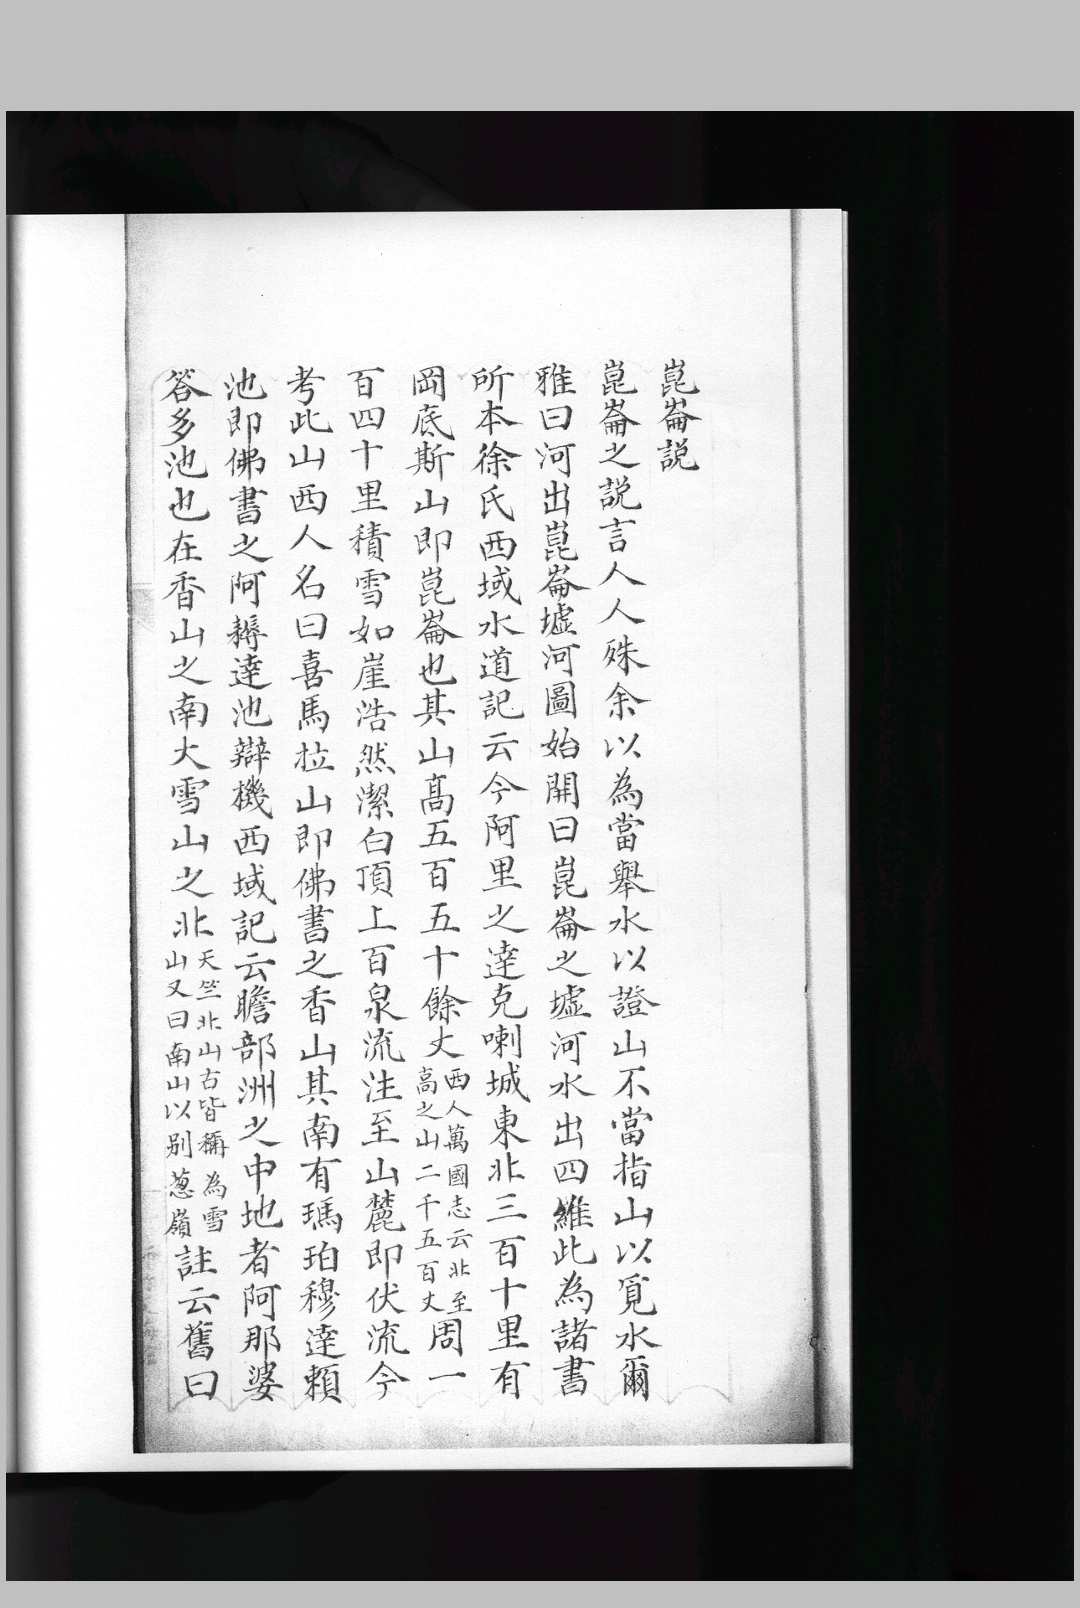 崑崙説
崑崙之説言人人殊余以為當舉水以證山不當指山以覓水爾
雅曰河出崑崙墟河圖始開曰崑崙之墟河水出四維此為諸書
所本徐氏西域水道記云今阿里之達克喇城東北三百十里有
岡底斯山即崑崙也其山高五百五十餘丈西人萬國志云北至高之山二千五百丈周一
百四十里積雪如崖浩然潔白頂上百泉流注至山麓即伏流今
考此山西人名曰喜馬拉山即佛書之香山其南有瑪珀穆達賴
池即佛書之阿耨達池辯機西域記云瞻部洲之中地者阿那婆
答多池也在香山之南大雪山之北天竺北山古皆稱為雪山又曰南山以别葱嶺註云舊曰